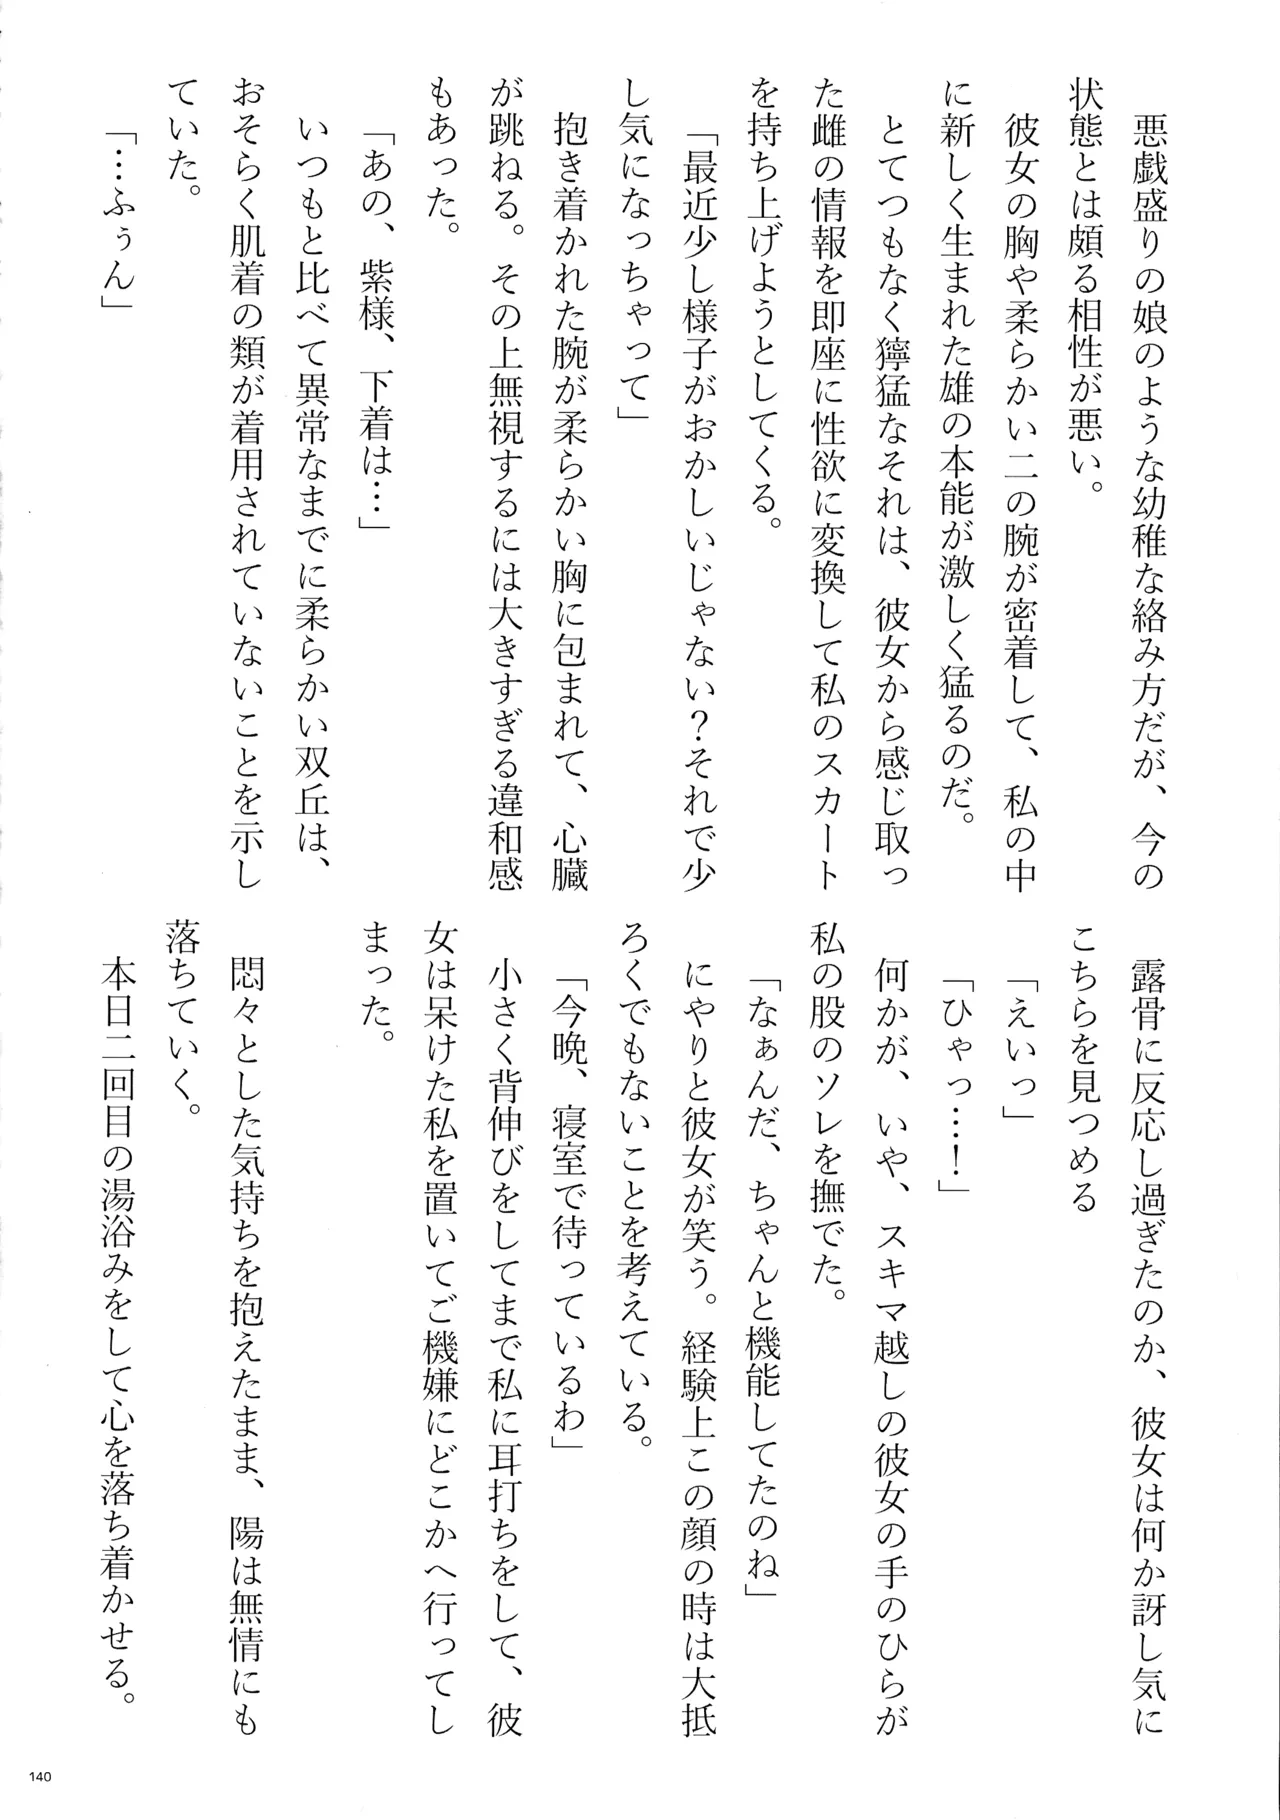 悪戯盛りの娘のような幼稚な絡み方だが、今の
状態とは頗る相性が悪い。
彼女の胸や柔らかい二の腕が密着して、私の中
に新しく生まれた雄の本能が激しく猛るのだ。
とてつもなく獰猛なそれは、彼女から感じ取っ
た雌の情報を即座に性欲に変換して私のスカート
を持ち上げようとしてくる。
「最近少し様子がおかしいじゃない？それで少
し気になっちゃって」
抱き着かれた腕が柔らかい胸に包まれて、心臓
が跳ねる。その上無視するには大きすぎる違和感
もあった。
「あの、紫様、下着は…」
いつもと比べて異常なまでに柔らかい双丘は、
おそらく肌着の類が着用されていないことを示し
ていた。
「…ふぅん」
露骨に反応し過ぎたのか、彼女は何か訝し気に
こちらを見つめる
「えいっ」
「ひゃっ…！」
何かが、いや、スキマ越しの彼女の手のひらが
私の股のソレを撫でた。
「なぁんだ、ちゃんと機能してたのね」
にやりと彼女が笑う。経験上この顔の時は大抵
ろくでもないことを考えている。
「今晩、寝室で待っているわ」
小さく背伸びをしてまで私に耳打ちをして、彼
女は呆けた私を置いてご機嫌にどこかへ行ってし
まった。
悶々とした気持ちを抱えたまま、陽は無情にも
落ちていく。
本日二回目の湯浴みをして心を落ち着かせる。
140